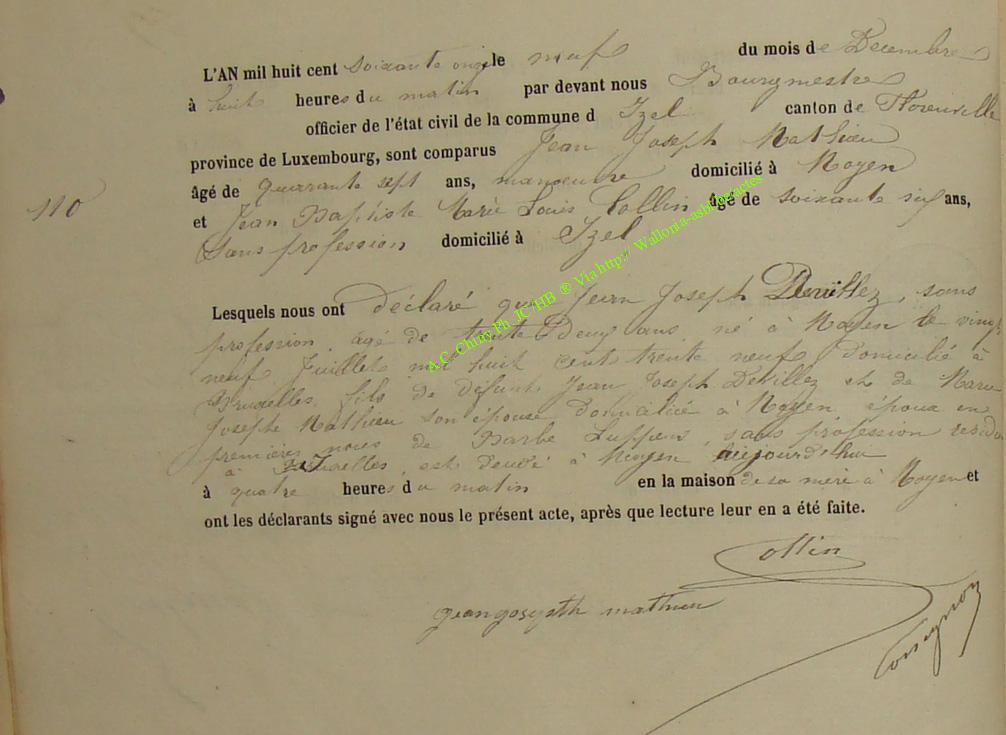 L'AN mil huit cent soixante onze le neuf du mois de Decembre
à huit heures du matin par devant nous Bourgmestre
officier de l'état civil de la commune d Izel canton de Florenville
province de Luxembourg, sont comparus Jean Joseph Mathieu
âgé de quarante sept ans, manoeuvre domicilié à Moyen
110
et Jean Baptiste Marie Louis Collin âgé de soixante six ans,
Sans profession domicilié à Izel
Lesquels nous ont déclaré que Jean Joseph Devillez, sans
profession, âgé de trente deux ans né à Moyen le vingt
neuf Juillet mil huit cent trente neuf domicilié à
Bruxelles, fils de défunt Jean Joseph Devillez et de Marie
Josephe Mathieu son épouse domiciliée à Moyen époux en
premières noces de Barbe Luppens, sans profession
à Bruxelles, est décédé à Moyen aujourd'hui
à quatre heures du matin en la maison de sa mère à Moyen et
ont les déclarants signé avec nous le présent acte, après que lecture leur en a été faite.
A.C. Chiny Ph. JC/HB ® Via http:// Wallonia-asbl.org/actes
Collin
jean gosepth mathieu